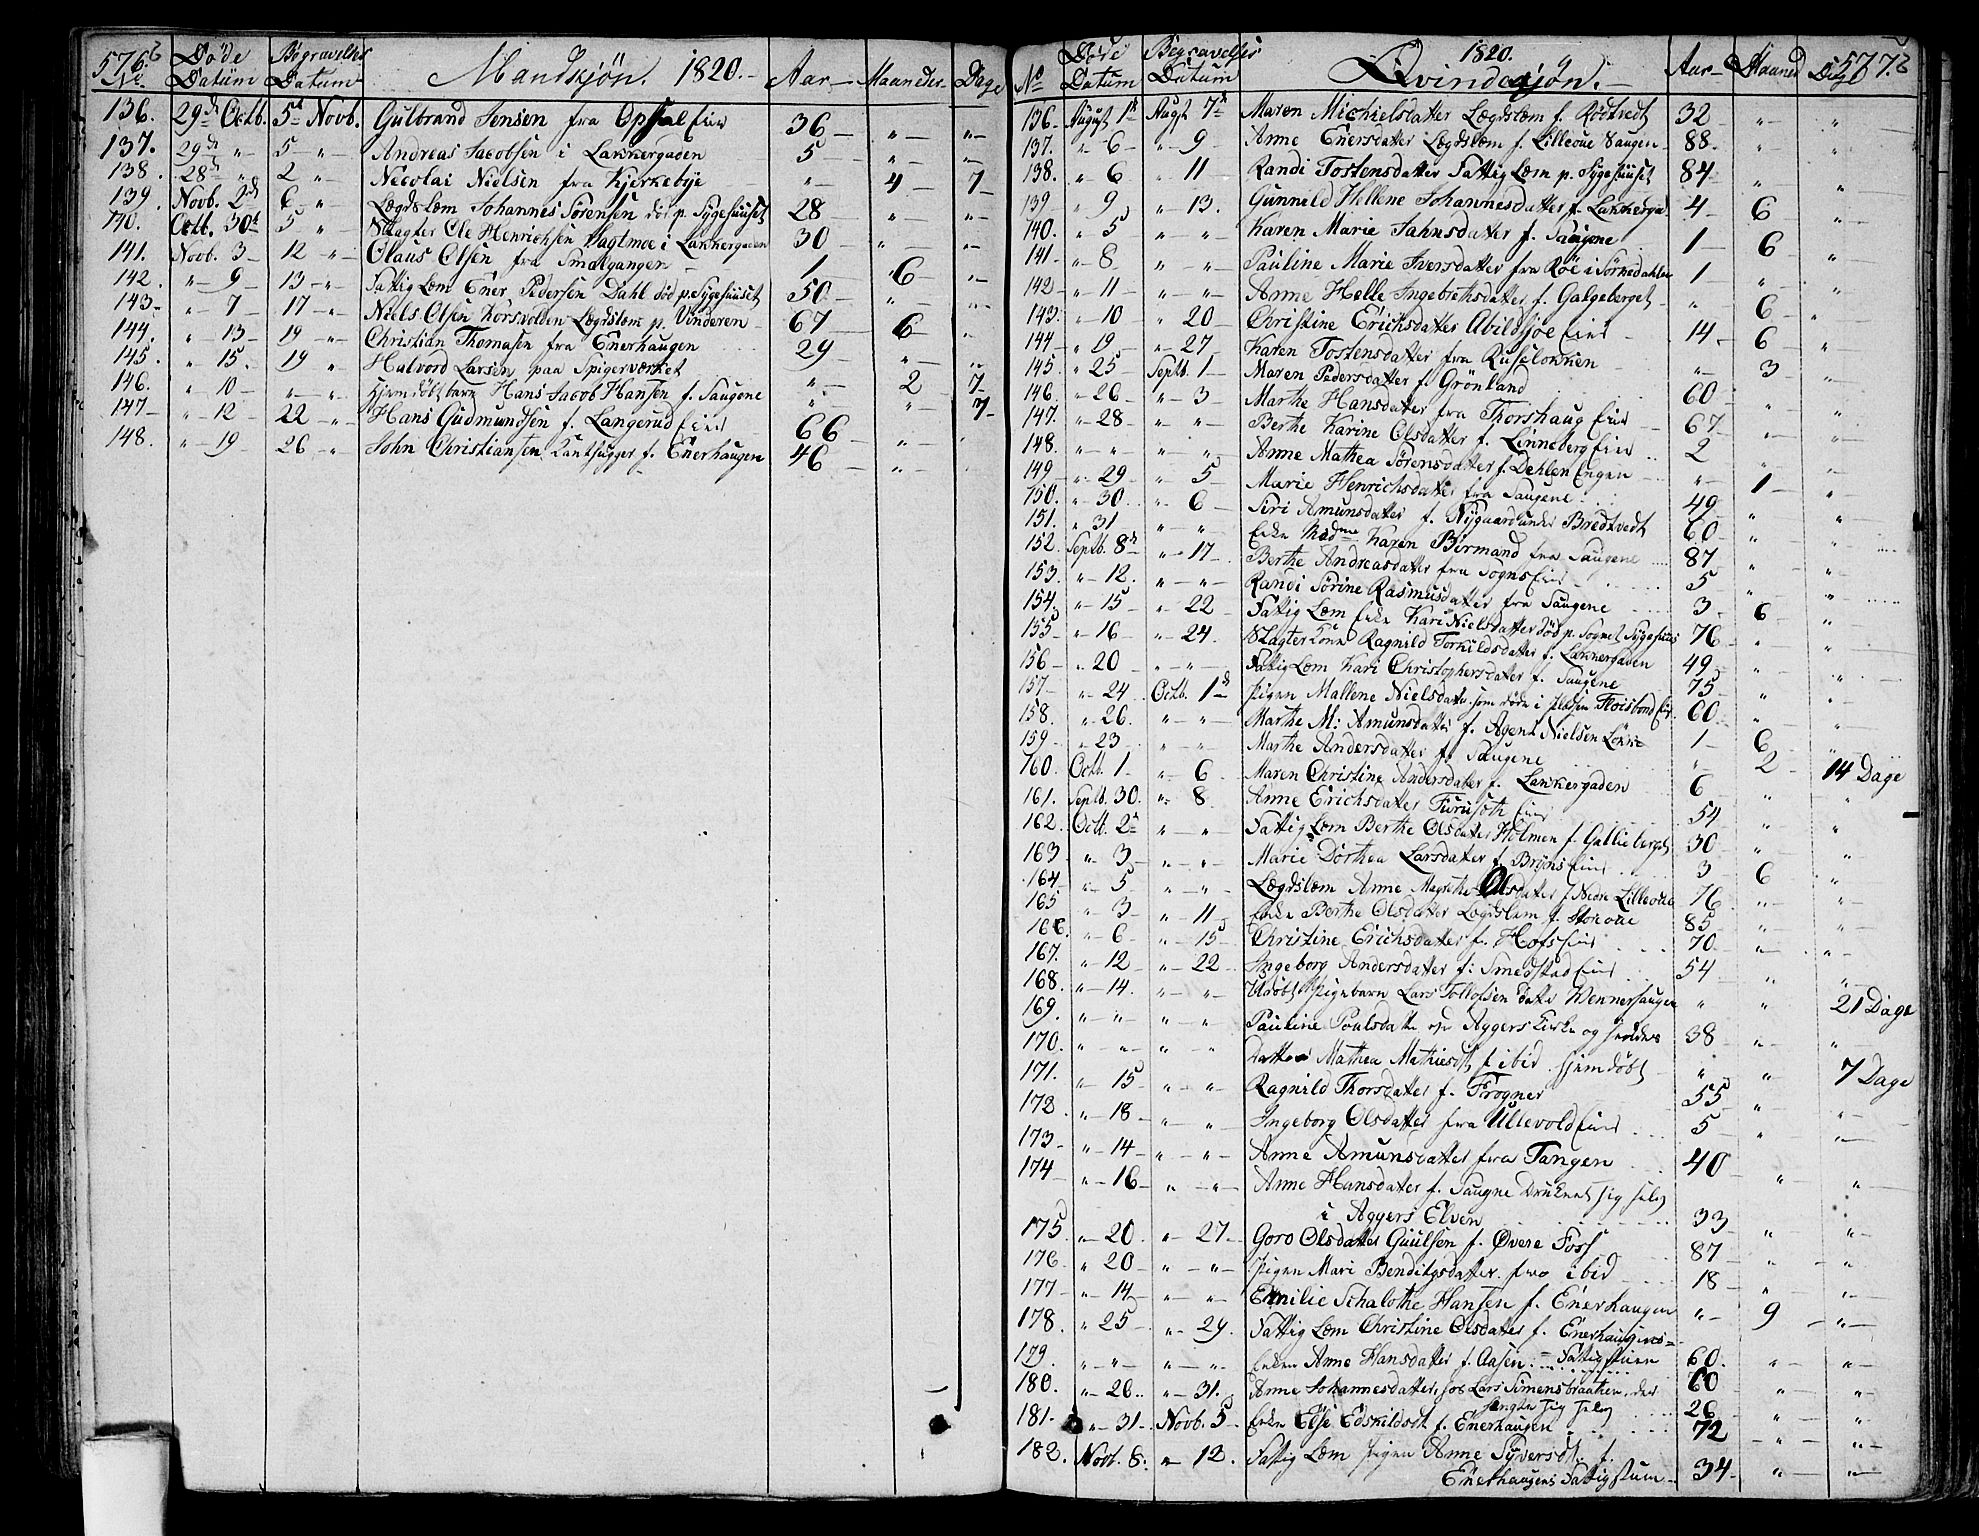 576 b
No
Döde Datüm
Begravelses Datum
Mandkjön. 1820.
Aar
Maaneder
Dage
136. 29d Octb. 5t Novb. Gulbrand Jensen fra Opsal Eier 36 — " — "
137. 29d " 5 " Andreas Jacobsen i Lakkergaden 5 — " — "
138. 28d " 2 " Nicolai Nielsen fra Kjerkebye " — 4 — 7
139. Novb. 2d 6 " Lægdslem Johannes Sörensen död p. Sygehuuset 28 " "
140. Octb. 30t 5 " Slagter Ole Henrichsen Sagtmoe i Lakkergaden 30 — " — "
141. Novb. 3 — 12 " Olaus Olsen fra Smalgangen 1 6 "
142. " 9 — 13 " Fattig Lem Ener Pedersen Dahl död p. Sygehuuset 50 " "
143 " 7 17 " Niels Olsen Korsvolden Lægdslem p. Vinderen 67 6 "
144. " 13 19 " Christian Thomasen fra Enerhaugen 29 " "
145. " 15. 19 " Halvord Larsen paa Spigerverket " 2 7
146. " 10 " " Hjemdöbt barn Hans Jacob Hansen f. Saugene " " 7
147 " 12 22 " Hans Gudmundsen f. Langerud Eier 66
148. " 19 26 " John Christiansen Tanthugger f. Enerhaugen 46 "
No
Döde Datum
Begravelses Datum
1820.
Qvindekjön.
Aar
Maaned
Dage
577. b
136. August 1st Augst 7d Maren Michielsdatter Lægdslem f. Rödtvedt 32 " "
137. " 6 " 9 Anne Enersdatter Lægdslem f. Lilleoue Haugen 88. " "
138. " 6 " 11 Randi Tostensdatter Fattig Lem p. Sygehuuset 84 " "
139 " 9 " 13. Gunnild Hellene Johannesdatter f. Lakkergad 4 6 "
140. " 5 " " Karen Marie Jahnsdatter f. Saugene 1 6 "
141 " 8 " " Pauline Marie Iversdatter fra Röe i Sörkedahlen 1 " "
142 " 11 " " Anne Helle Ingebrethsdatter f. Galgeberget " 6 "
143 " 10 " 20 Christine Erichsdatter Abildsjoe Eier 14 6 "
144 " 19 " 27 Karen Tostensdatter fra Ruseløkken " 3 "
145 " 25 Septb. 1 Maren Pedersdatter f. Grönland 60 " "
146. " 26 " 3 Marthe Hansdatter fra Thorshaug Eier 67 " "
147. " 28 " " Berthe Karine Olsdatter f. Linneberg Eier 2 " "
148. " " " " Anne Mathea Sörensdatter f. Dehlen Engen " 1 "
149 " 29 " 5 Marie Henrichsdatter fra Saugene 49 " "
150. " 30 " 6 Siri Amunsdatter f. Nygaard under Bredtvedt 60 " "
151. " 31 " " Enke Madme Karen Birmand fra Saugene 87 " "
152. Septb. 8d " 17 Berthe Andreasdatter fra Sogns Eier 5 " "
153. " 12. " " Randi Sörine Rasmusdatter fra Saugene 3 6 "
154 " 15 " 22 Fattig Lem Enke Kari Nielsdatter död p. Sognets Sygehuus 76 " "
155 " 16 " 24. Slagter Kone Ragnild Torkildsdatter f. Lakkergaden 49 " "
156 " 20 " " Fattig Lem Kari Christophersdatter f. Saugene 75 " "
157 " 24 Octb. 1d Pigen Mallene Nielsdatter som döde i Pladsen Floisbond Eier 60 " "
158. " 26. " " Marthe M: Amunsdatter f. Agent Nielsen Løkke 1 6 "
159 " 23 " " Marthe Andersdatter f. Saugene " 2 14 Dage
160. Octb. 1 " 6 Maren Christine Andersdatter f. Lakkergaden 6 " "
161. Septb. 30. " 8 Anne Erichsdatter Furuseth Eier 54 " "
162. Octb. 2d " " Fattig Lem Berthe Olsdatter Holmen f. Gallieberget 30 " "
163 " 3 " " Marie Dorthea Larsdatter f. Bryns Eier 3 6 "
164 " 5 " " Lægdslem Anne Magrethe Olsdatter f. Nedre Lilleoue 76 " "
165 " 3 " 11 Enke Berthe Olsdatter Lægdslem f. Storoue 85 " "
166. " 6 " 15 Christine Erichsdatter fr. Hofs Eier 70 " "
167. " 12 " 22 Ingeborg Andersdatter f. Smedstad Eier 54 " "
168. " 14. " " Udöbt Pigebarn Lars Tollofsen datter Wennerhaugen " " 21 Dage
169. " " " " Pauline Poulsdatter Aggers Kirke og hendes 38 " "
170. " " " " Datter Mathea Mathiesdt f. ibid. hjemdöbt " " 7 Dage
171. " 15 " " Ragnild Thorsdatter f. Frogner 55 " "
172. " 18 " " Ingeborg Olsdatter fra Ullevold Eier 5 " "
173 " 14 " " Anne Amunsdatter fra Tangen 40
174 " 16 " " Anne Hansdatter f. Saugne Druknet sig selv
i Aggers Elven 33 " "
175 " 20 " 27 Goro Olsdatter Guulsen f. Øvere Foss 87 " "
176 " 20 " " Pigen Mari Benditgsdatter fra ibid 18 " "
177 " 14 " " Emilie Schalothe Hansen f. Enerhaugen " 9 "
178. " 25 " 29. Fattig Lem Christine Olsdatter f. Enerhaugens
Fattigstuen 60. " "
179. " " " " Enke Anne Hansdatter f. Aasen 60 " "
180. " 26. " 31. Anne Johannesdatter, hos Lars Simensbraaten, der
hengte sig selv 26 " "
181. " 31. Novb. 5 Enke Else Edskildsdt f. Enerhaugen 72 " "
182. Novb. 8. " 12. Fattig Lem Pigen Anne Syversdt. f.
Enerhaugens Fattigstum 34 " "